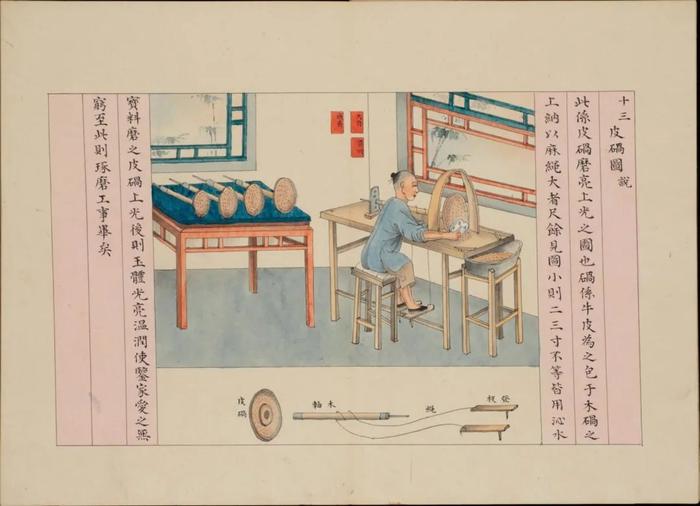 十三 皮碢圖說
此係皮碢磨亮上光之圖也碢係牛皮為之包于木碢之
上納以麻繩大者尺餘見圓小則二三寸不等皆用沁水
寶料磨之皮碢上光後則玉體光亮溫潤使鑒家愛之無
窮至此則琢磨工事畢矣
皮碢
木軸
繩
登板